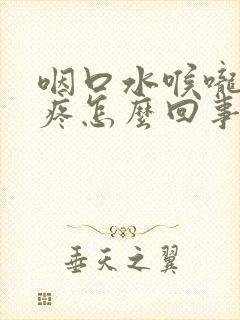 咽口水喉嚨
疼怎麼回事
垂天之翼